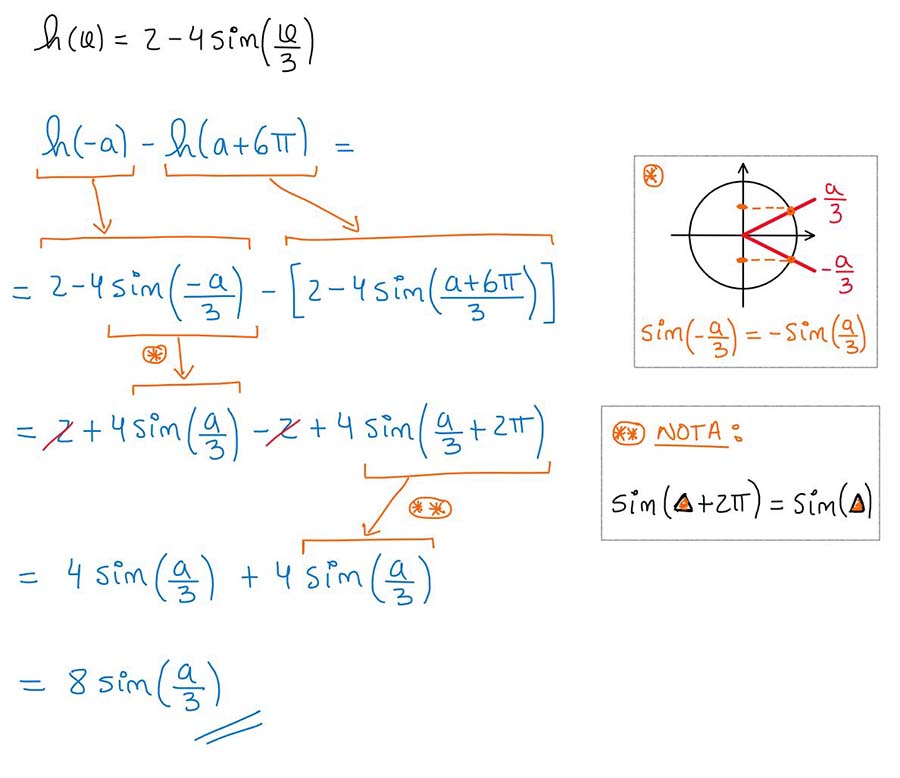 h(φ) = 2 - 4 sin(φ/3)
h(-a) - h(a+6π) =
= 2 - 4 sin(-a/3) - [2 - 4 sin((a+6π)/3)]
*
= 2 + 4 sin(a/3) - 2 + 4 sin(a/3 + 2π)
**
= 4 sin(a/3) + 4 sin(a/3)
= 8 sin(a/3)
*
a/3
-a/3
sin(-a/3) = -sin(a/3)
** NOTA:
sin(△+2π) = sin(△)